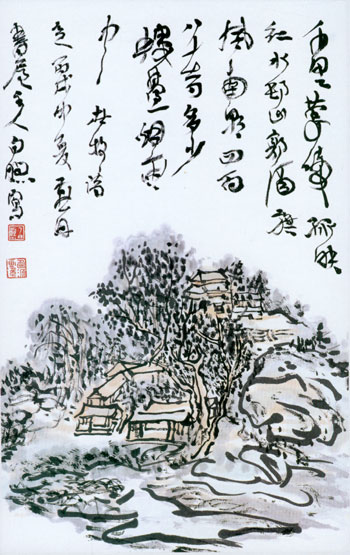 千里鶯啼綠映
紅水邨山郭酒旗
風南朝四百
八十寺多少
樓臺烟雨
中 杜牧詩
丙戌 夏
主人 寫